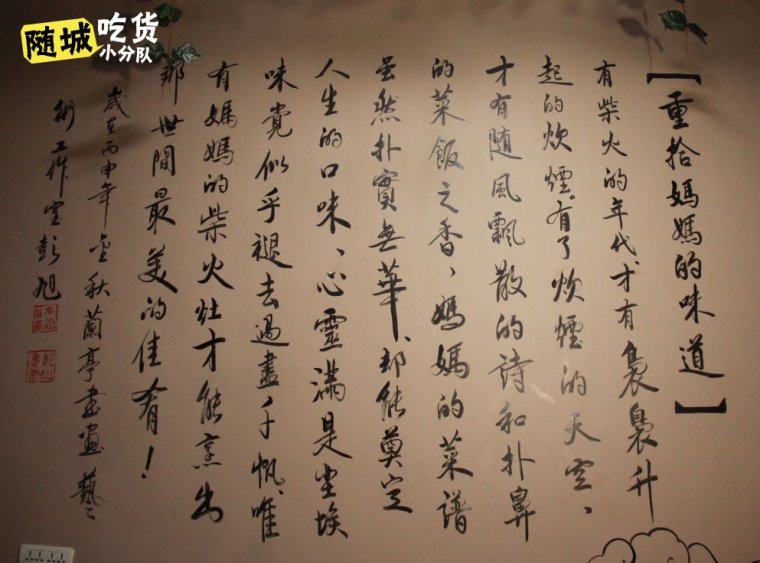 随城吃货
小分队
【重拾媽媽的味道】
有柴火的年代、才有裊裊升
起的炊煙。有了炊煙的天空、
才有随風飄散的詩和扑鼻
的菜飯之香、媽媽的菜譜
虽然扑實無華、却能奠定
人生的口味、心靈滿是尘埃
味覚似乎褪去過盡千帆、唯
有媽媽的柴火灶才能烹出
那世間最美的佳肴！
歲在丙申年金秋蘭亭書畫藝
術工作室彭旭